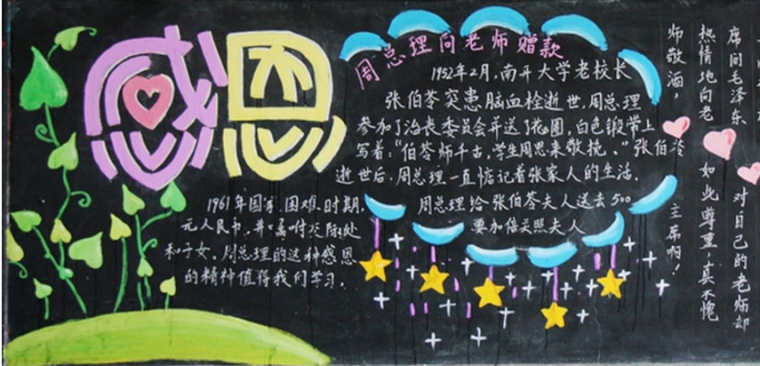 感恩
周总理向老师赠款
1952年2月,南开大学老校长
张伯苓突患脑血栓逝世,周总理
参加了治丧委员会并送了花圈,白色锻带上
写着:“伯苓师千古,学生周恩来敬挽。”张伯苓
逝世后,周总理一直惦记着张家人的生活.
1961年国家困难时期,
周总理给张伯苓夫人送去500
元人民币,并嘱咐交际处
要加倍关照夫人
和子女。周总理的这种感恩
的精神值得我们学习.
席间毛泽东
热情地向老
师敬酒,
对自己的老师却
如此尊重,真不愧
主席啊!